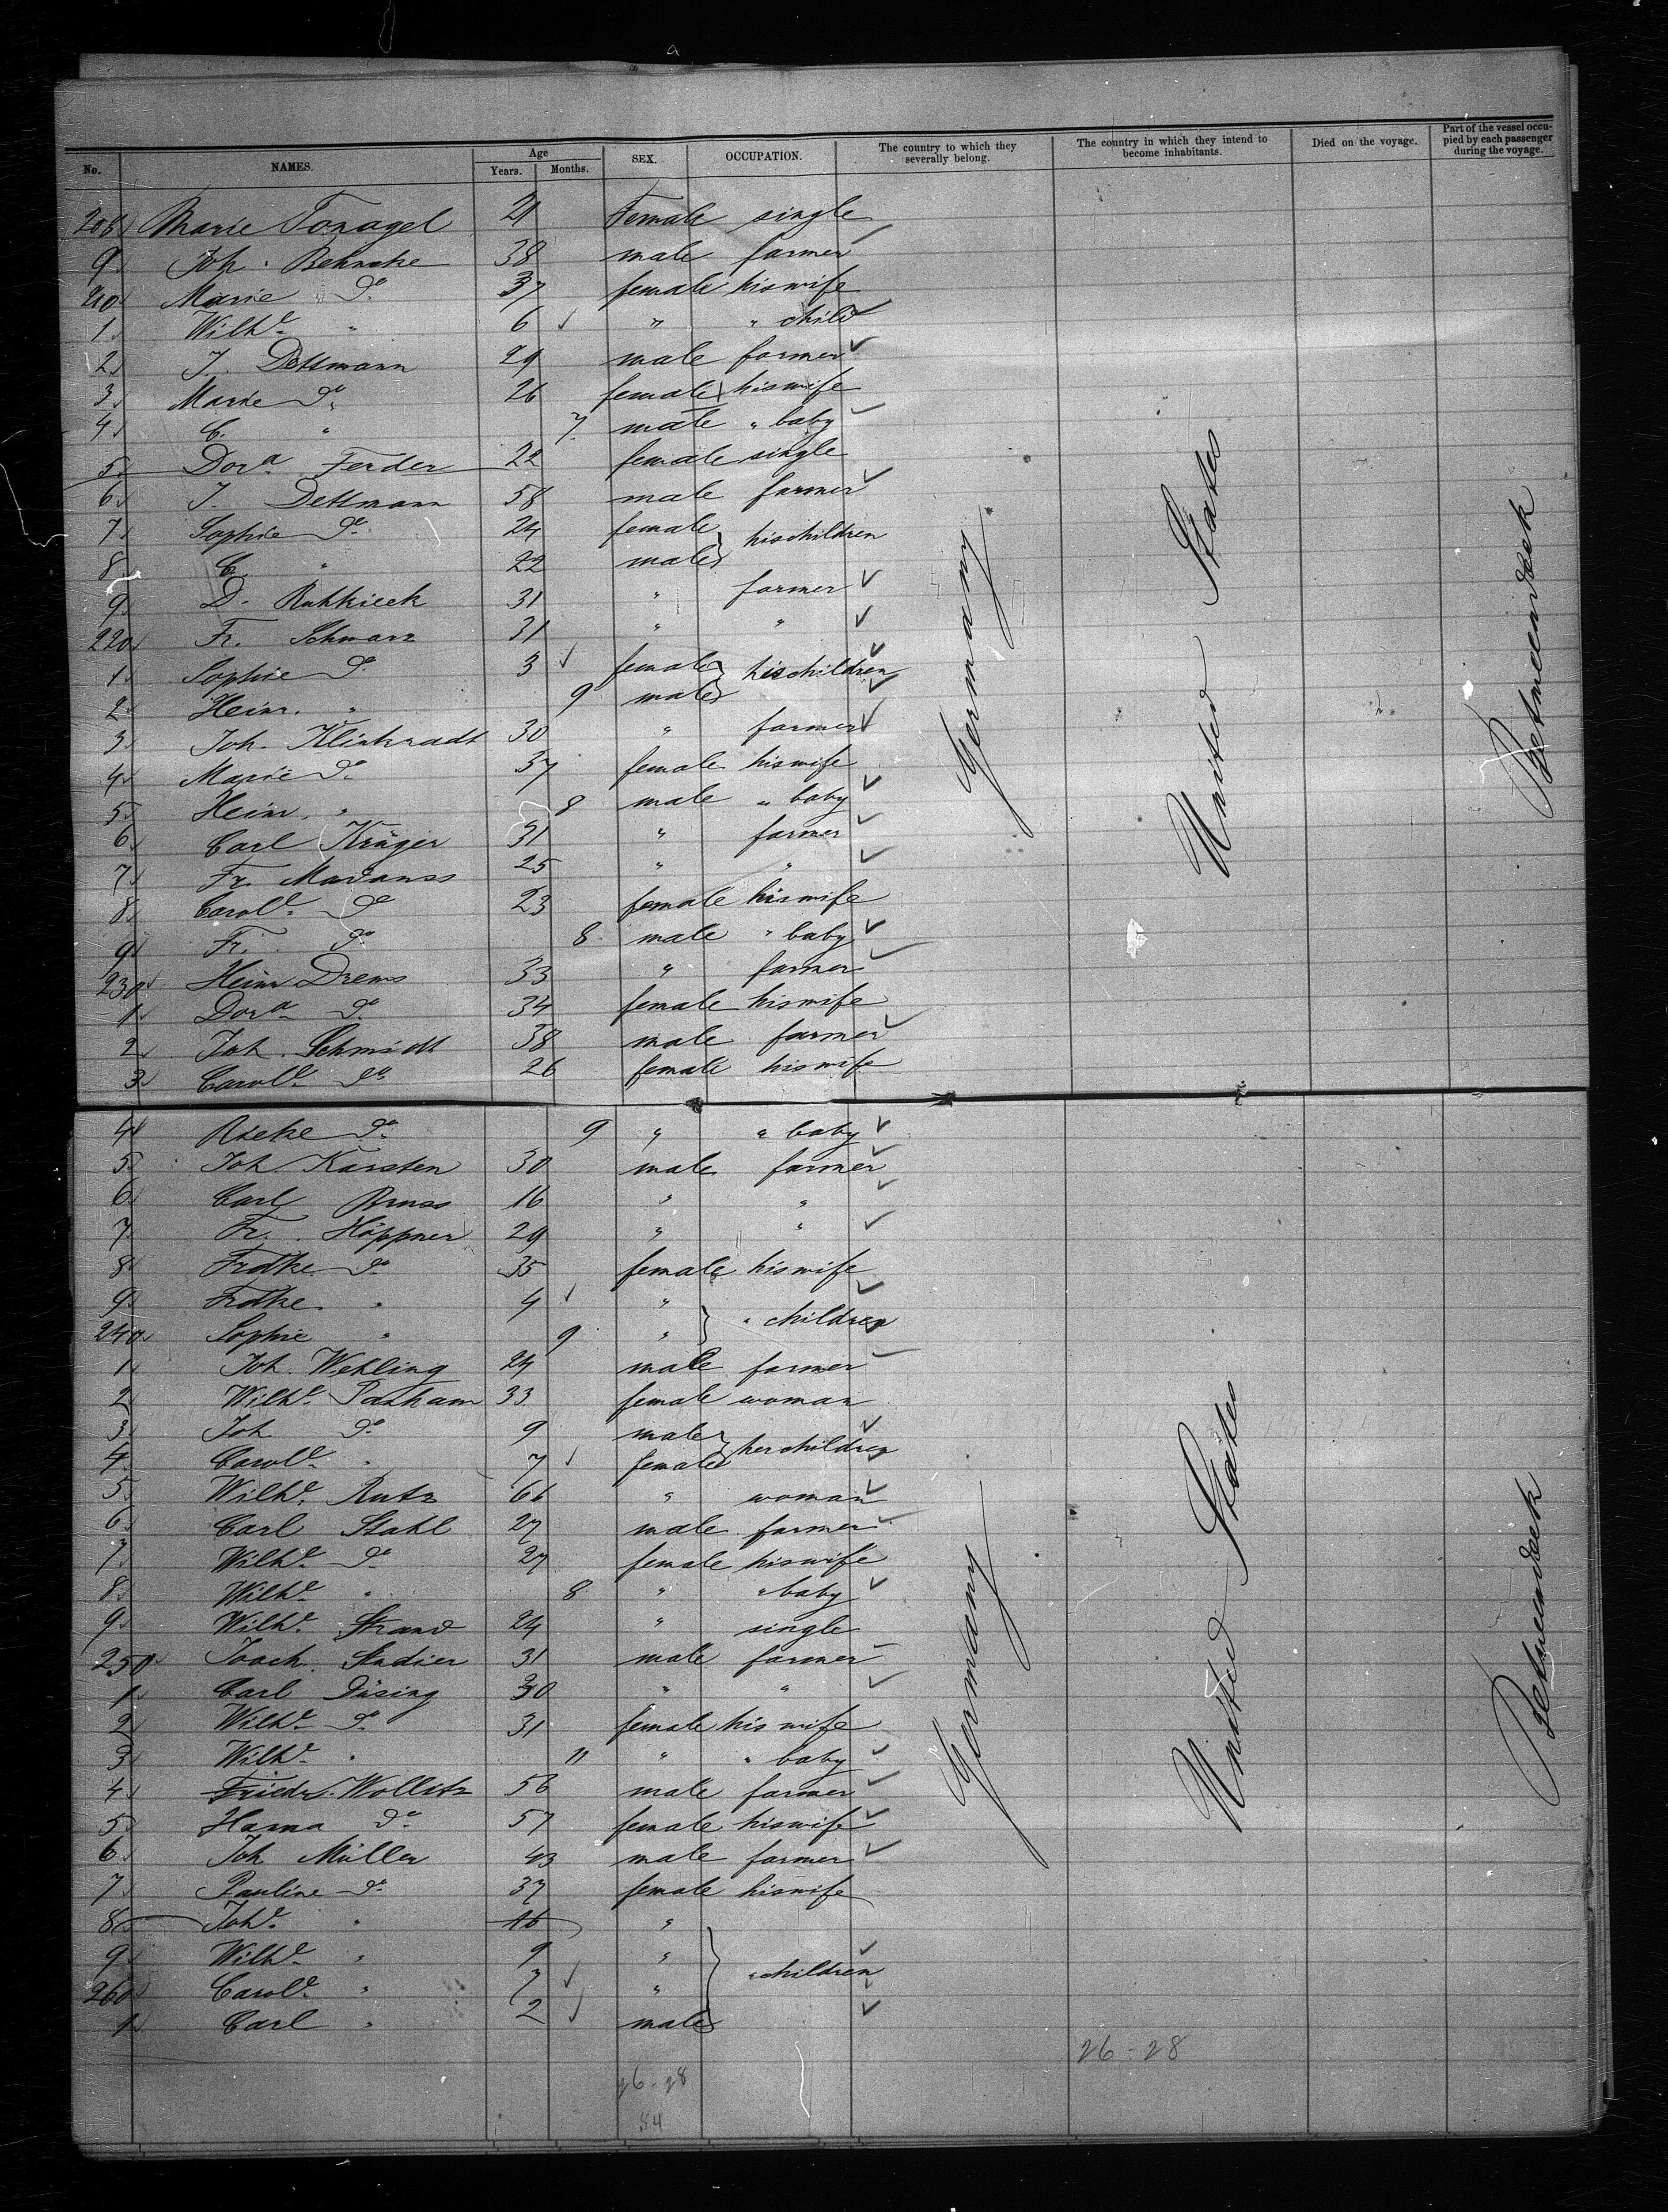 No. NAMES. Age Years. Months. SEX. OCCUPATION. The country to which they severally belong. The country in which they intend to become inhabitants. Died on the voyage. Part of the vessel occupied by each passenger during the voyage.
208 Marie Tonagel 21 Female single
9 Joh. Behncke 38 male farmer
210 Marie do 37 female his wife
1 Wilhe " 6 " " child
2 J. Dettmann 29 male farmer
3 Marie do 26 female his wife
4 C. " 7 male " baby
5 Dora Ferder 22 female single
6 J. Dettmann 58 male farmer
7 Sophie do 24 female his children
8 C. " 22 male
9 D. Ruhkieck 31 " farmer
220 Fr. Schwarz 31 " "
1 Sophie do 3 female his children
2 Heinr. " 9 male
3 Joh. Klinkradt 30 " farmer
4 Marie do 37 female his wife
5 Heinr. " 8 male " baby
6 Carl Krüger 31 " farmer
7 Fr. Madauss 25 " "
8 Carole do 23 female his wife
9 Fr. do 8 male " baby
230 Heinr Drews 33 " farmer
1 Dora do 34 female his wife
2 Joh. Schmidt 38 male farmer
3 Carole do 26 female his wife
4 Rieke do 9 " " baby
5 Joh Karsten 30 male farmer
6 Carl Bruss 16 " "
7 Fr. Höppner 29 " "
8 Frdke do 35 female his wife
9 Frdke. " 4 " " children
240 Sophie " 9 "
1 Joh. Wehling 24 male farmer
2 Wilhe Parham 33 female woman
3 Joh do 9 male her children
4 Carole " 7 female
5 Wilhe. Rutz 66 " woman
6 Carl Stahl 27 male farmer
7 Wilhe do 27 female his wife
8 Wilhe " 8 " " baby
9 Wilhe Strand 24 " single
250 Joach. Stadier 31 male farmer
1 Carl Düsing 30 " "
2 Wilhe do 31 female his wife
3 Wilhe " 11 " " baby
4 Friedr. Wollitz 56 male farmer
5 Hanna do 57 female his wife
6 Joh Müller 43 male farmer
7 Pauline do 37 female his wife
8 Johe " 16 "
9 Wilhe " 9 " " children
260 Carole " 7 "
1 Carl " 2 male
Germany
United States
Betweendeck
Germany
United States
Betweendeck
26-28
26-28
54